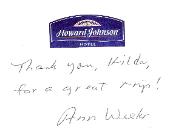 Howard Johnson
HOTEL
Thank you, Hilda,
for a great trip!
Ann Weeks